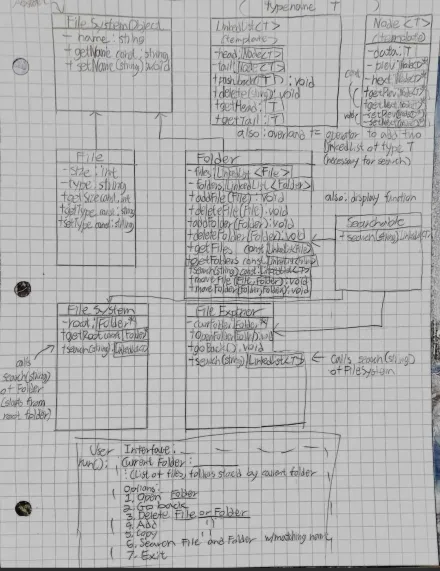 (typename T)
FileSystemObject
- name: string
+ getName const: string
+ setName(string): void
LinkedList<T>
(template)
- head: Node<T>
- tail: Node<T>
+ pushback(T): void
+ delete(string): void
+ getHead: T
+ getTail: T
also: overload += operator to add two
LinkedList of type T
(necessary for search)
Node<T>
(template)
- data: T
- prev
- next
File
- size: int
- type: string
+ getSize const: int
+ getType const: string
+ setType const: string
Folder
- files: LinkedList<File>
- folders: LinkedList<Folder>
+ addFile(File): void
+ deleteFile(File): void
+ addFolder(Folder): void
+ deleteFolder(Folder): void
+ getFiles const: LinkedList<File>
+ getFolders const: LinkedList
+ search(string) const: LinkedList<T>
+ moveFile(File, Folder): void
+ moveFolder(Folder, Folder): void
also: display function
Searchable
+ search(string): LinkedList
File System
- root: Folder*
+ getRoot const: Folder*
+ search(string): LinkedList
calls
search(string)
of Folder
(starts from
root folder)
File Explorer
- currFolder: Folder*
+ openFolder(Folder): void
+ goBack(): void
+ search(string): LinkedList<T>
Calls search(string)
of FileSystem
User Interface:
run(): Current Folder:
(List of files, folders stored by current folder
Options:
1. Open Folder
2. Go back
3. Delete File or Folder
4. Add " "
5. Copy " "
6. Search File and Folder w/matching name
7. Exit